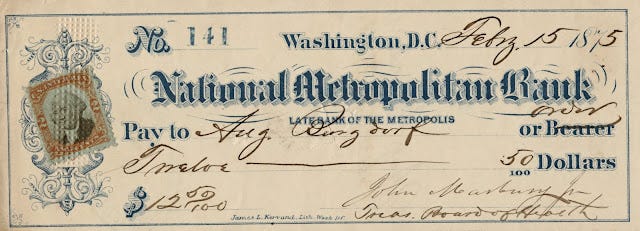 No. 141 Washington, D.C. Feby 15 1875
National Metropolitan Bank
LATE BANK OF THE METROPOLIS
order
Pay to Aug. Burgdorf or Bearer
Twelve 50/100 Dollars
$12 50/100 John Marbury Jr
Treas. Board of Health